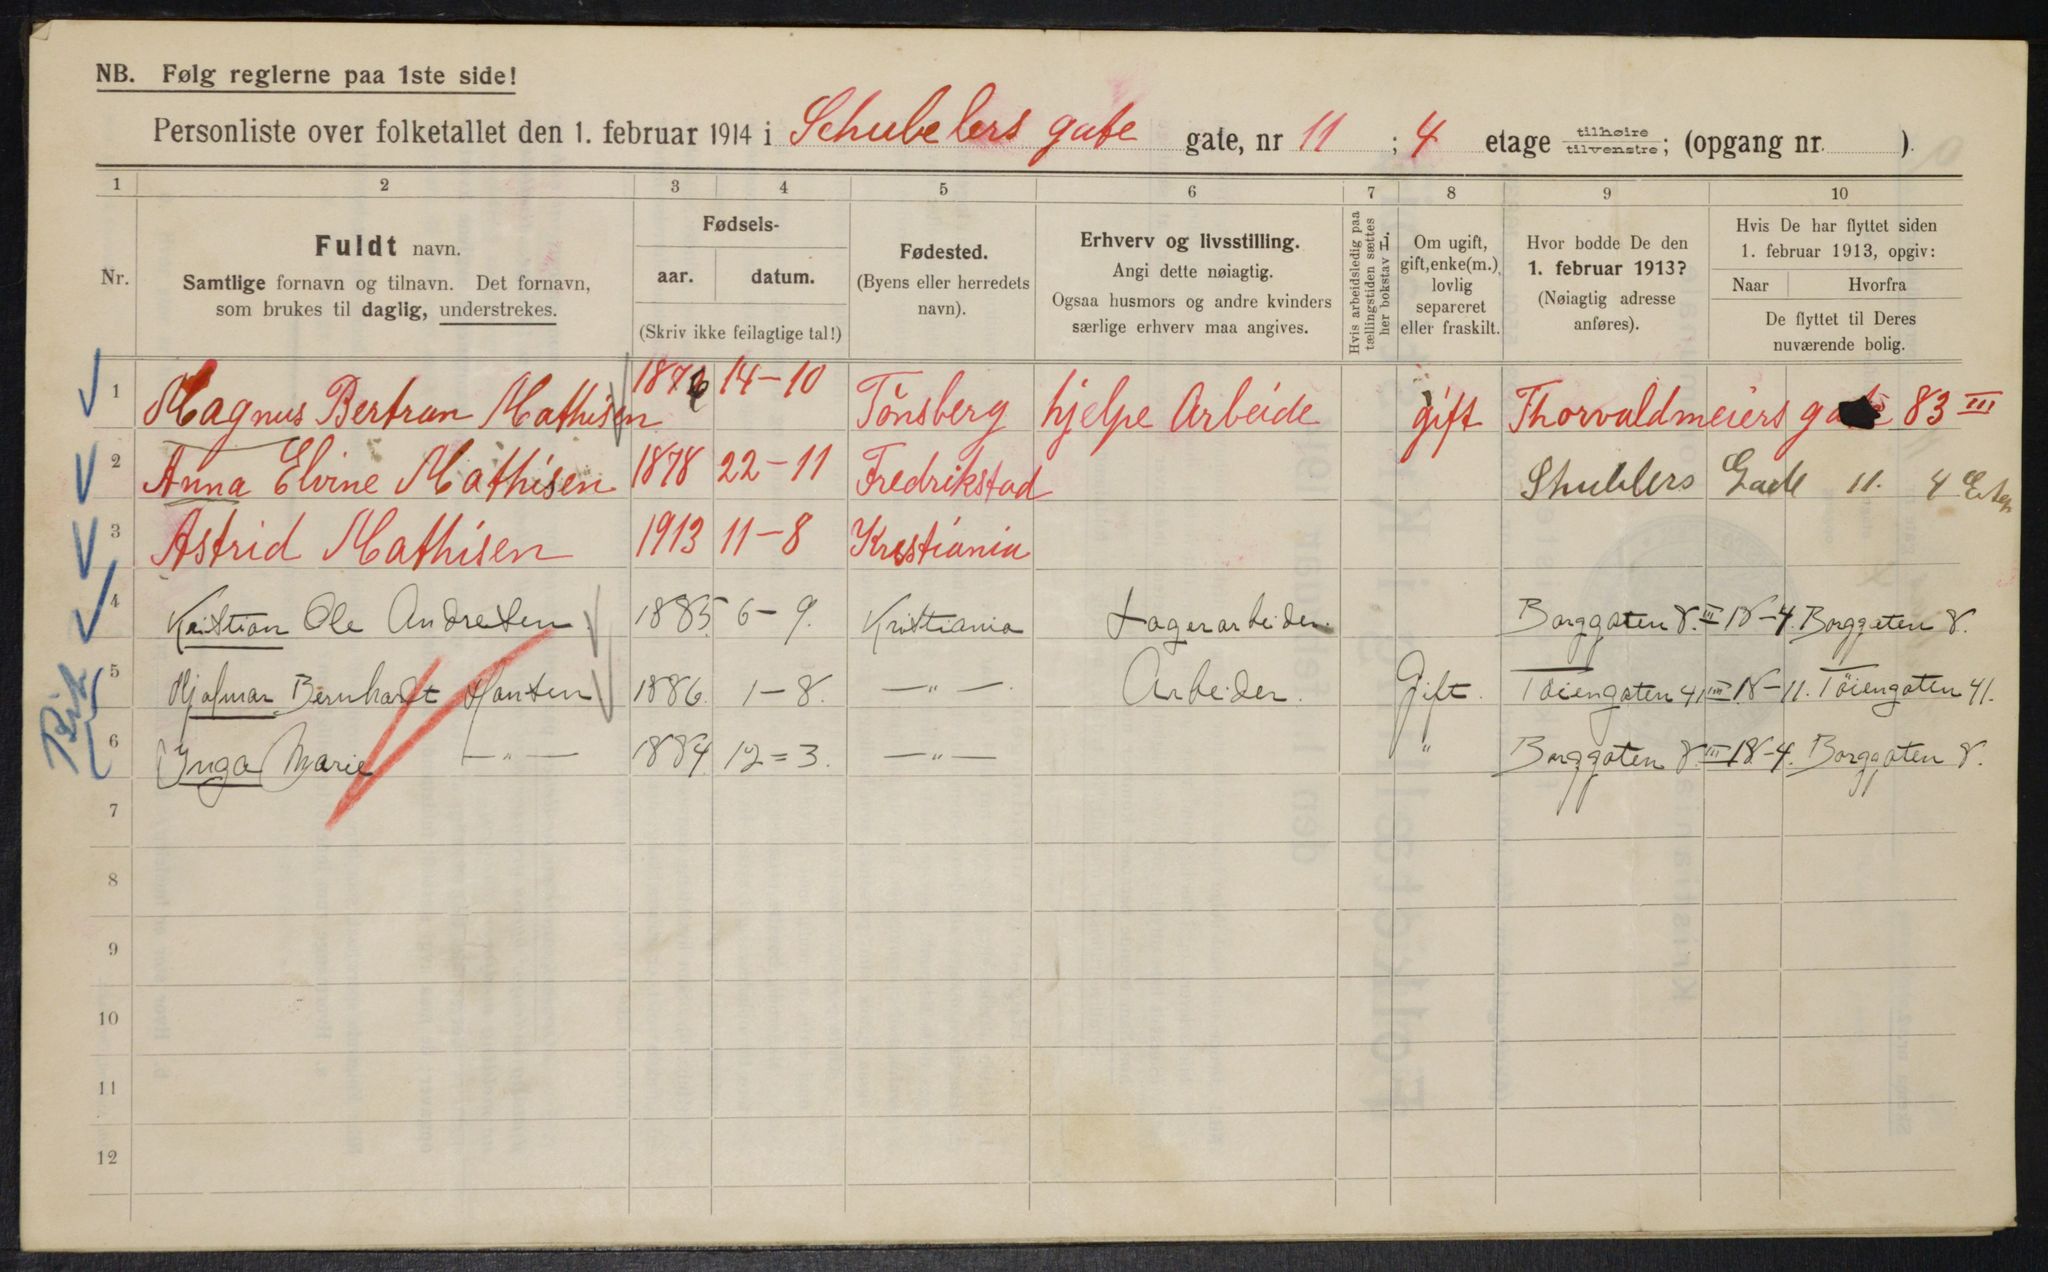 NB. Følg reglerne paa 1ste side!
Personliste over folketallet den 1. februar 1914 i Schubelers gate gate, nr 11 ; 4 etage tilhøire tilvenstre; (opgang nr. ).
1 2 3 4 5 6 7 8 9 10
Nr.
Fuldt navn.
Samtlige fornavn og tilnavn. Det fornavn,
som brukes til daglig, understrekes.
Fødsels-
aar. datum.
(Skriv ikke feilagtige tal!)
Fødested.
(Byens eller herredets
navn).
Erhverv og livsstilling.
Angi dette nøiagtig.
Ogsaa husmors og andre kvinders
særlige erhverv maa angives.
Hvis arbeidsledig paa
tællingstiden sættes
her bokstav L.
Om ugift,
gift, enke(m.),
lovlig
separeret
eller fraskilt.
Hvor bodde De den
1. februar 1913?
(Nøiagtig adresse
anføres).
Hvis De har flyttet siden
1. februar 1913, opgiv:
Naar Hvorfra
De flyttet til Deres
nuværende bolig.
1 Magnus Bertran Mathisen 14-10 Tönsberg hjelpe Arbeide gift Thorvaldmeiers gate 83 III
2 Anna Elvine Mathisen 1878 22-11 Fredrikstad Shublers Gade 11. 4 Etg
3 Astrid Mathisen 1913 11-8 Krestiania
4 Kristian Ole Andresen 1885 6-9. Kristiania Lagerarbeider. Borggaten 8. III 18-4. Borggaten 8.
5 Hjalmar Bernhardt Hansen 1886. 1-8. -"- Arbeider. Gift. Töiengaten 41 III 18-11. Töiengaten 41.
6 Inga Marie -"- 1884. 12=3. -"- " Borggaten 8. III 18-4. Borggaten 8.
7
8
9
10
11
12